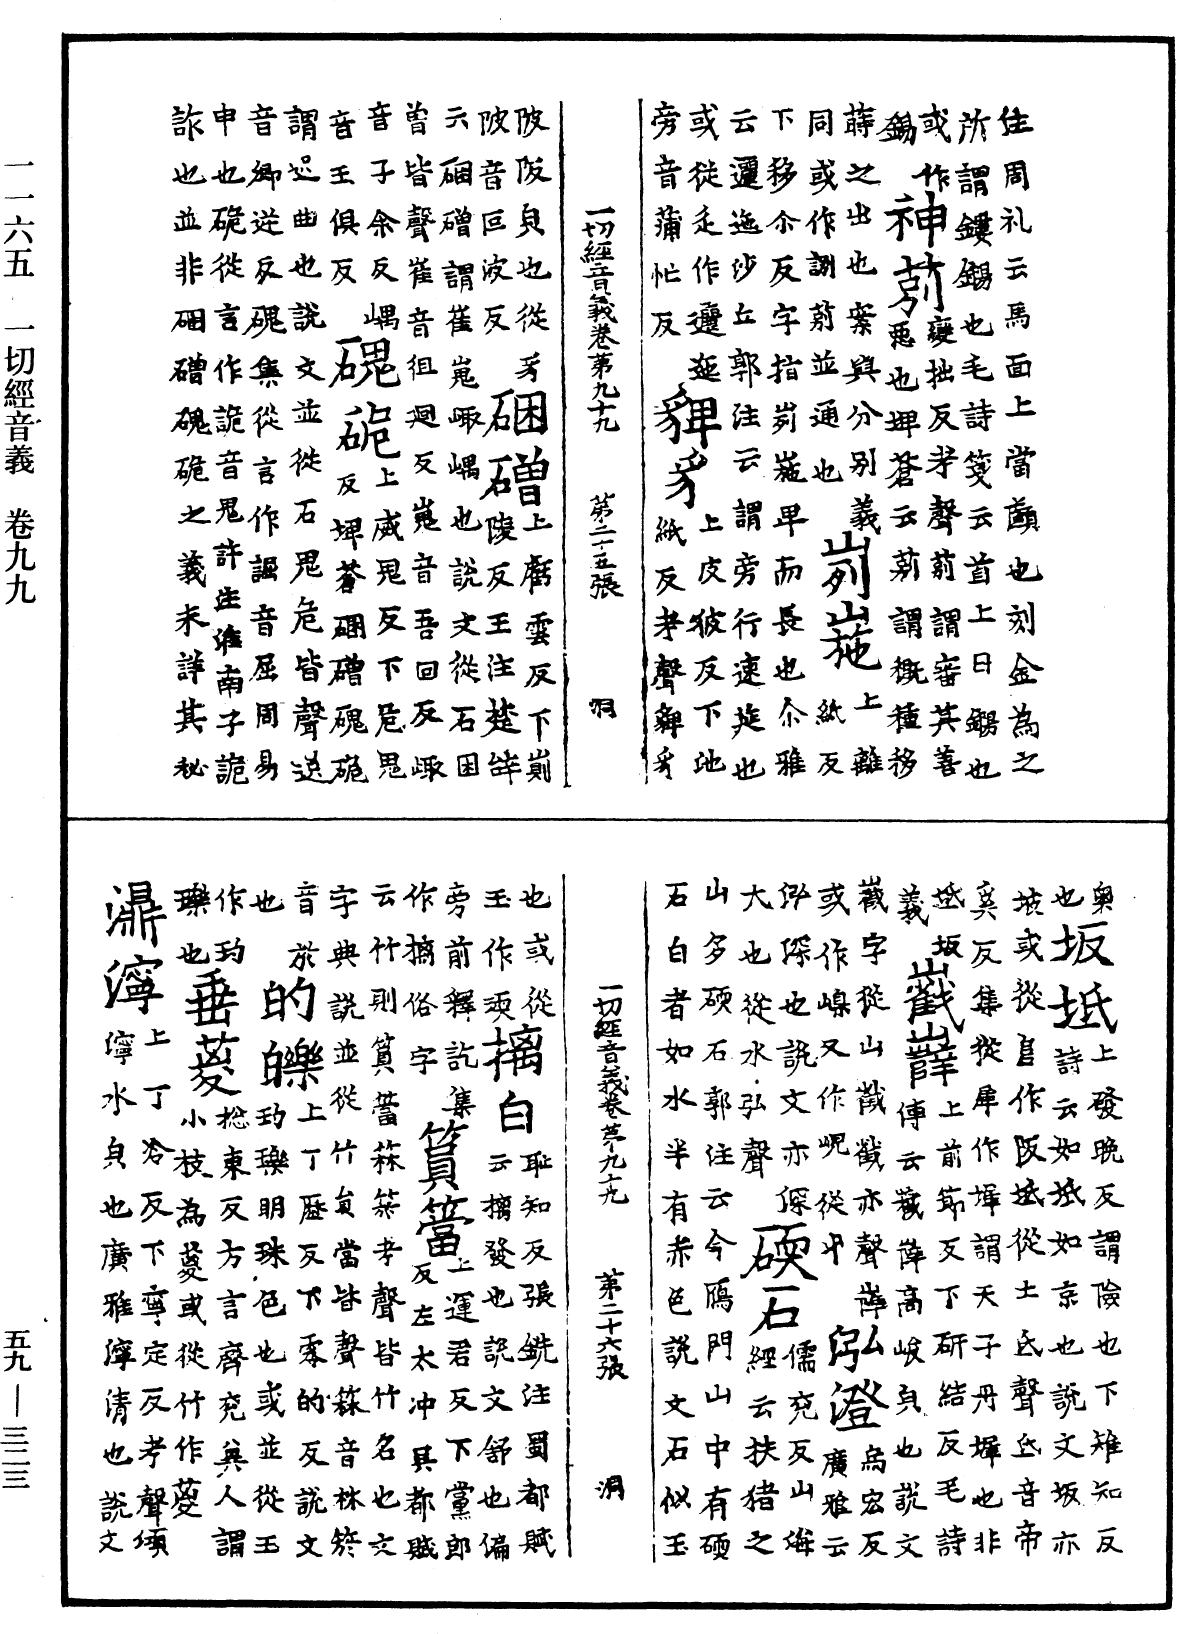 住周礼云馬面上當顱也刻金為之
所謂鏤錫也毛詩箋云首上曰錫也
或作錫 神莂 變拙反考聲莂謂審其善
惡也埤蒼云莂謂概種移
蒔之出也案與分别義
同或作𧧸莂並通也 峛崺 上離紙反
下移尒反字指峛崺卑而長也尒雅
云邐迤沙丘郭注云謂旁行連延也
或従辵作邐迤 豍豸 上皮彼反下池紙反考聲豍豸
旁音蒲忙反
一切經音義卷第九十九 第二十五張 洞
陂陁皃也從豸 硱磳 上𧇾雲反下崱陵反王注楚辝
陂音叵波反
云硱磳謂崔嵬嶮嵎也說文從石囷
曾皆聲崔音徂廻反嵬音吾回反嶮
音子余反嵎 磈硊 上威鬼反下危鬼反埤蒼硱磳磈硊
音王俱反
謂迟曲也說文並從石鬼危皆聲迟
音卿逆反磈集從言作䛼音屈周易
申也硊從言作詭音鬼許注淮南子詭
詐也並非硱磳磈硊之義未詳其秘
奥也 坂坻 上發晚反謂險也下雉知反
詩云如坻如京也說文坂亦
坡或從𨸏作阪坻從土氐聲氐音帝
奚反集從庳作墀謂天子丹墀也非
坻坂義 巀嶭 上前節反下研結反毛詩
傳云巀嶭高峻皃也說文
巀字從山㦸㦸亦聲嶭
或作嵲又作峴從屮 泓澄 烏宏反廣雅云
泓深也說文亦深
大也從水弘聲 碝石 儒兖反山海經云扶猪之
山多碝石郭注云今鴈門山中有碝
石白者如水半有赤色說文石似玉
一切經音義卷第九十九 第二十六張 洞
也或從玉作瑌 摛白 恥知反張銑注蜀都賦
云摛發也說文舒也偏
旁前釋訖集作摛俗字 篔簹 上運君反下黨郎
反左太冲具都賦
云竹則篔簹箖箊考聲皆竹名也文
字典說並從竹員當皆聲箖音林箊
音於 的皪 上丁歷反下零的反說文
玓瓅明珠色也或並從玉
也作玓瓅也 垂葼 捴東反方言齊兖冀人謂
小枝為葼或從竹作䈦
㵀濘 上丁冷反下寧定反考聲㵀
濘水皃也廣雅濘清也說文
一一六五 一切經音義 卷九九
五九—三二三